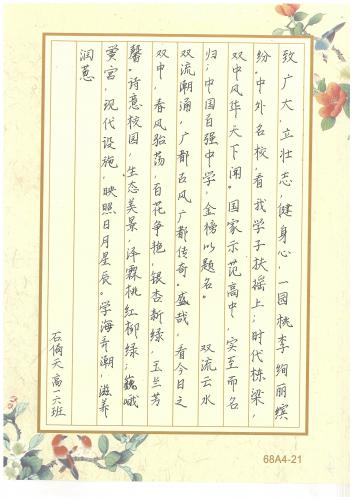 致广大,立壮志,健身心,一园桃李绚丽缤
纷。中外名校,看我学子扶摇上;时代栋梁,
双中风华天下闻。国家示范高中,实至而名
归;中国百强中学,金榜以题名。 双流云水
双流潮涌,广都古风广都传奇。盛哉,看今日之
双中,春风骀荡,百花争艳,银杏新绿,玉兰芳
馨。诗意校园,生态美景,泽霖桃红柳绿;巍峨
黉宫,现代设施,映照日月星辰。学海弄潮,滋养
润蕙
石倚天高一六班
68A4-21